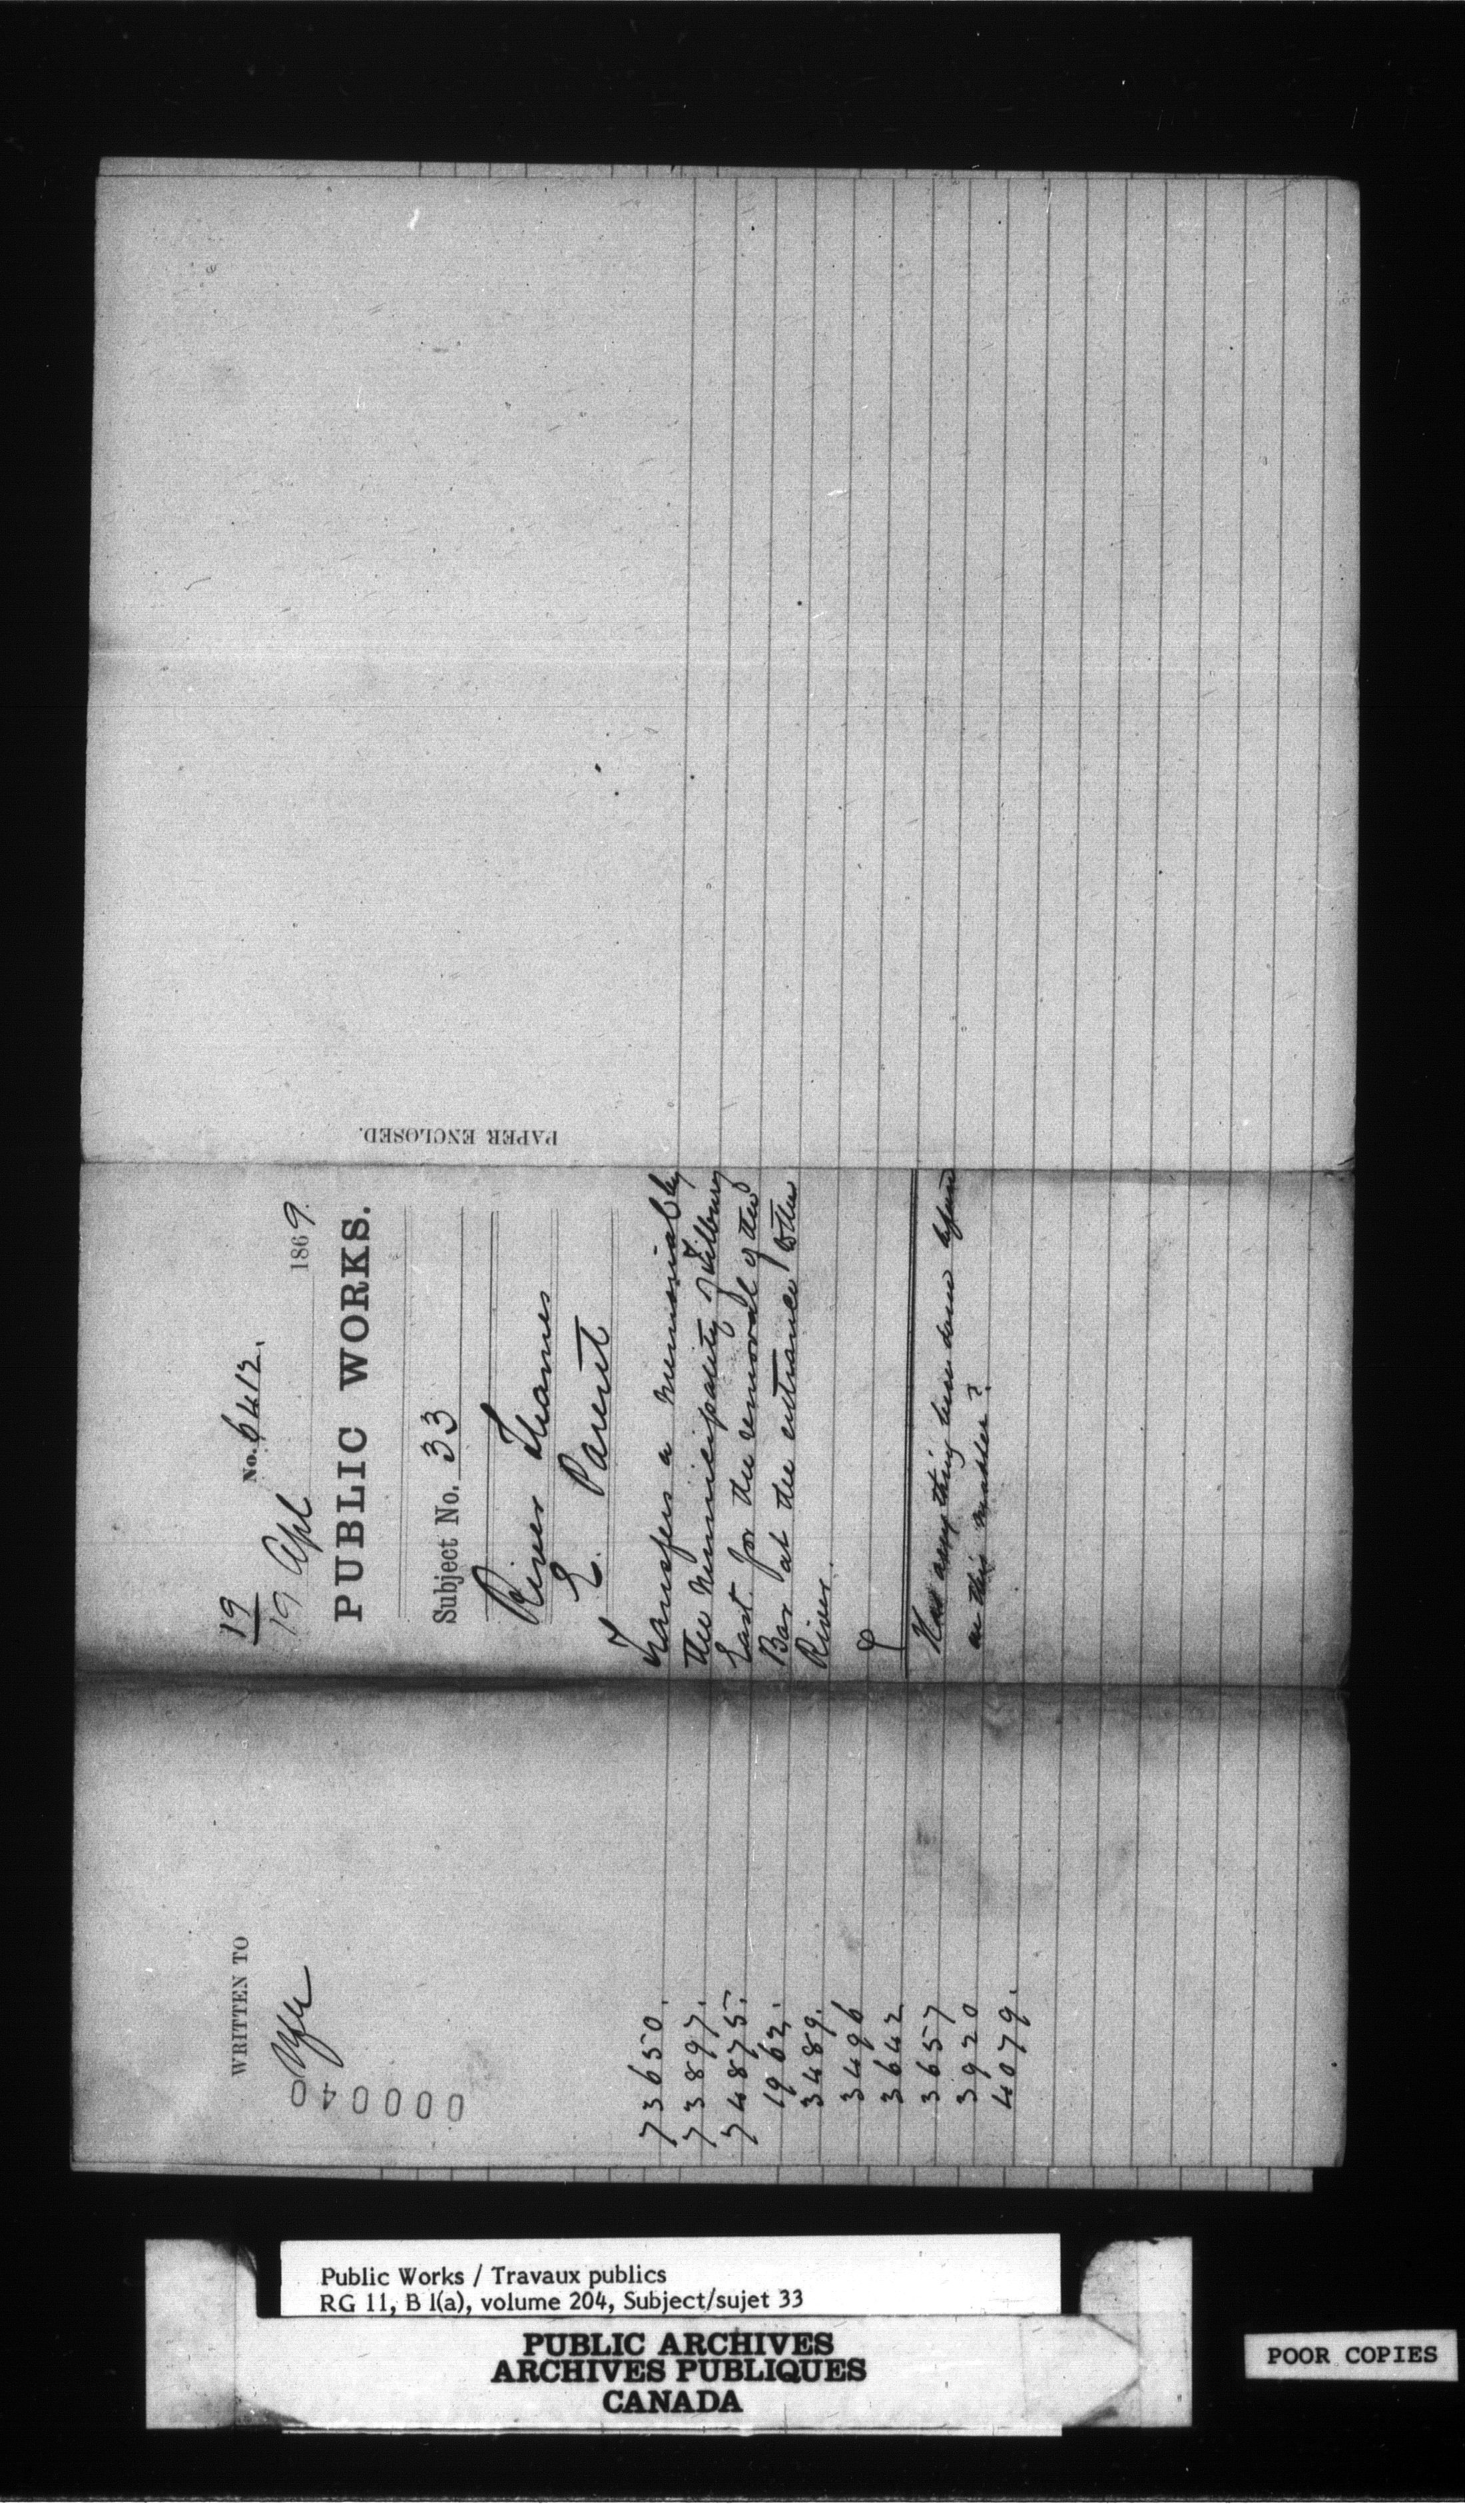 19
No. 6412.
19 Apl 1869.
PUBLIC WORKS.
Subject No. 33
River Thames
E. Parent
Transfers a Memorial by
the Municipality of Tilbury
East. for the removal of the
Bar at the entrance to the
River.
Has any thing been done before
in this matter?
PAPER ENCLOSED.
WRITTEN TO
000040
73650.
73897.
74875.
1962.
3489.
3496
3642
3657
3920
4079.
Public Works / Travaux publics
RG 11, B 1(a), volume 204, Subject/sujet 33
PUBLIC ARCHIVES
ARCHIVES PUBLIQUES
CANADA
POOR COPIES